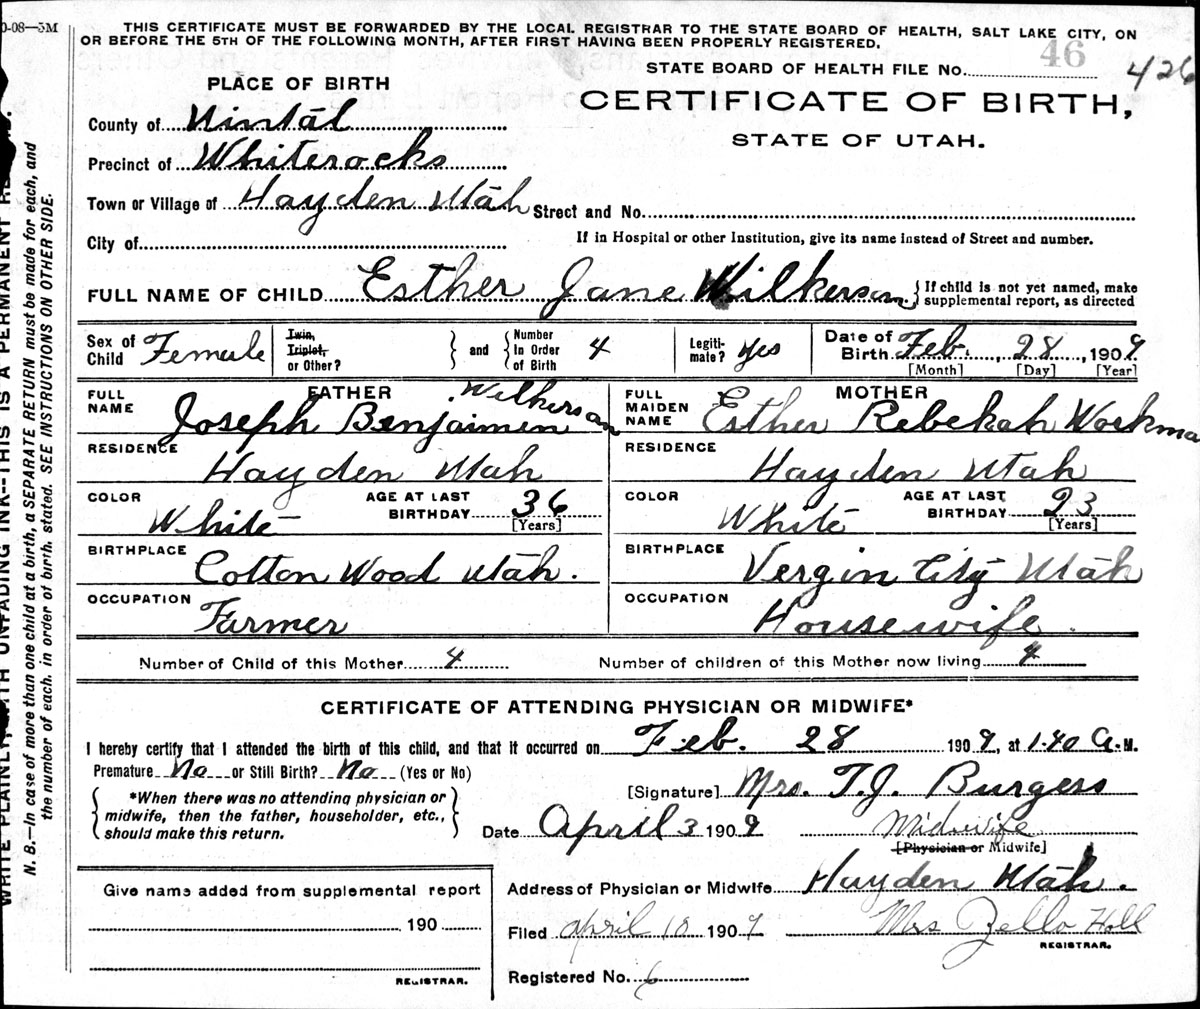 0-08—5M
THIS CERTIFICATE MUST BE FORWARDED BY THE LOCAL REGISTRAR TO THE STATE BOARD OF HEALTH, SALT LAKE CITY, ON
OR BEFORE THE 5TH OF THE FOLLOWING MONTH, AFTER FIRST HAVING BEEN PROPERLY REGISTERED.
46
STATE BOARD OF HEALTH FILE NO. 426
PLACE OF BIRTH
CERTIFICATE OF BIRTH,
STATE OF UTAH.
County of Uintah
Precinct of Whiterocks
Town or Village of Hayden Utah Street and No.
City of If in Hospital or other Institution, give its name instead of Street and number.
FULL NAME OF CHILD Esther Jane Wilkerson { If child is not yet named, make
supplemental report, as directed
Sex of Child Female
Twin, Triplet, or Other? } and { Number In Order of Birth 4
Legiti-mate? Yes
Date of Birth Feb. , 28 , 1909
[Month] [Day] [Year]
FATHER
FULL NAME Joseph Benjaimen Wilkerson
MOTHER
FULL MAIDEN NAME Esther Rebekah Workma
RESIDENCE Hayden Utah
RESIDENCE Hayden Utah
COLOR White AGE AT LAST BIRTHDAY 36 [Years]
COLOR White AGE AT LAST BIRTHDAY 23 [Years]
BIRTHPLACE Cotton Wood Utah.
BIRTHPLACE Vergin City Utah
OCCUPATION Farmer
OCCUPATION Housewife.
Number of Child of this Mother 4 Number of children of this Mother now living 4
CERTIFICATE OF ATTENDING PHYSICIAN OR MIDWIFE*
I hereby certify that I attended the birth of this child, and that it occurred on Feb. 28 1909, at 1.40 A.M.
Premature No or Still Birth? No (Yes or No)
[Signature] Mrs. T.J. Burgess
{ *When there was no attending physician or
midwife, then the father, householder, etc.,
should make this return. }
Date April 3 1909 Midwife
[Physician or Midwife]
Address of Physician or Midwife Hayden Utah.
Give name added from supplemental report
190
REGISTRAR.
Filed April 10 1909 Mrs Zella Hall
REGISTRAR.
Registered No. 6
WRITE PLAINLY, WITH UNFADING INK--THIS IS A PERMANENT
N. B.—In case of more than one child at a birth, a SEPARATE RETURN must be made for each, and
the number of each, in order of birth, stated. SEE INSTRUCTIONS ON OTHER SIDE.